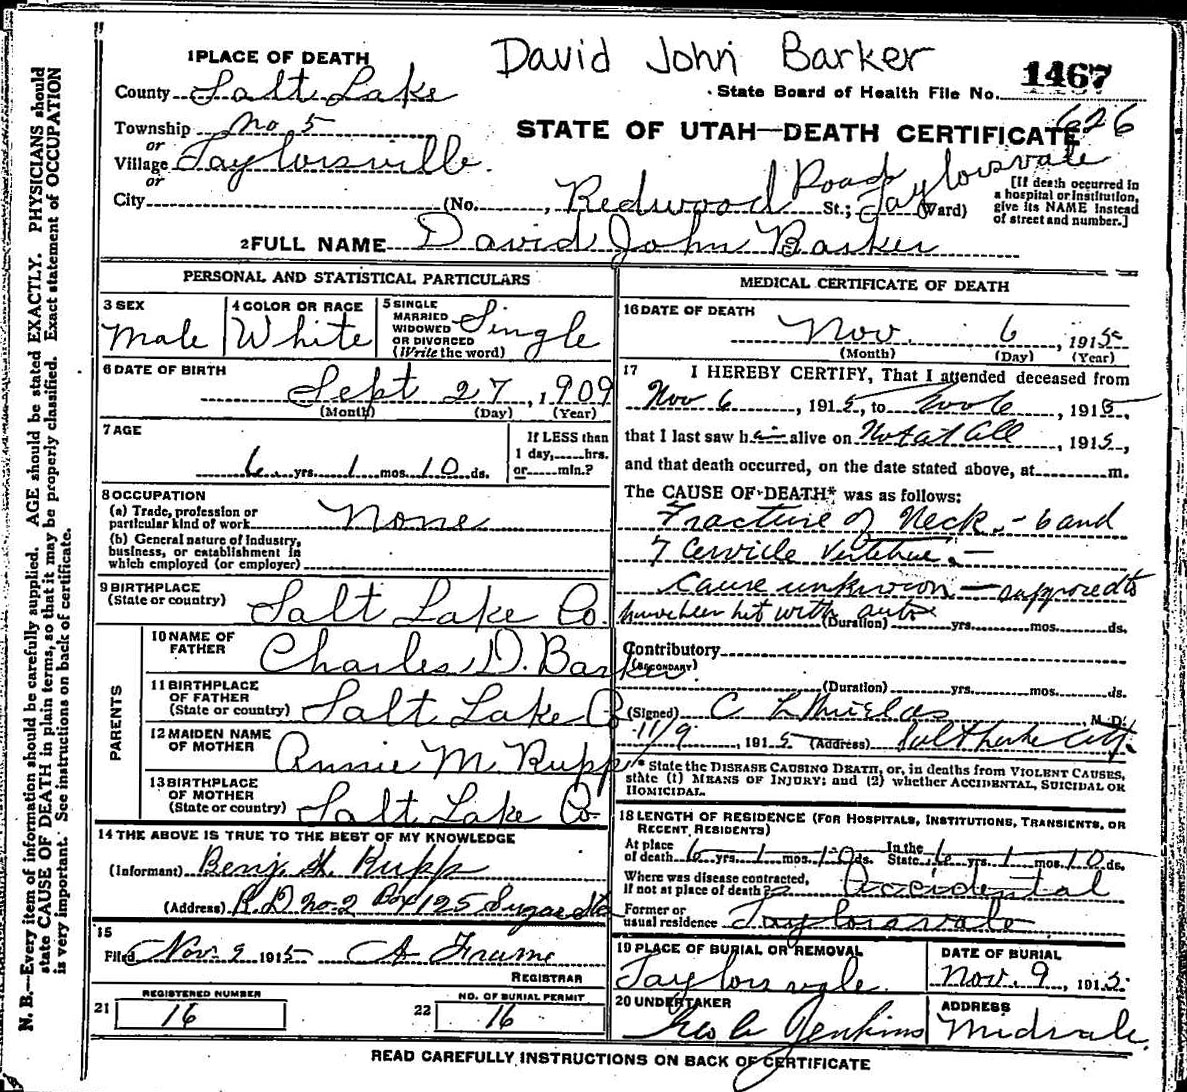 David John Barker
1467
1 PLACE OF DEATH
County Salt Lake
State Board of Health File No.
626
Township No. 5
or
STATE OF UTAH—DEATH CERTIFICATE
Village Taylorsville.
or
City (No. , Redwood Road St.; Taylorsvale Ward)
[If death occurred in a hospital or institution, give its NAME instead of street and number.]
2 FULL NAME David John Barker
PERSONAL AND STATISTICAL PARTICULARS
3 SEX
Male
4 COLOR OR RACE
White
5 SINGLE
MARRIED
WIDOWED
OR DIVORCED
(Write the word)
Single
6 DATE OF BIRTH
Sept 27, 1909
(Month) (Day) (Year)
7 AGE
6 yrs. 1 mos. 10 ds.
If LESS than
1 day, hrs.
or min.?
8 OCCUPATION
(a) Trade, profession or
particular kind of work None
(b) General nature of industry,
business, or establishment in
which employed (or employer)
9 BIRTHPLACE
(State or country) Salt Lake Co.
PARENTS
10 NAME OF
FATHER Charles D. Barker.
11 BIRTHPLACE
OF FATHER
(State or country) Salt Lake Co
12 MAIDEN NAME
OF MOTHER Annie M. Rupp
13 BIRTHPLACE
OF MOTHER
(State or country) Salt Lake Co
14 THE ABOVE IS TRUE TO THE BEST OF MY KNOWLEDGE
(Informant) Benj. H. Rupp
(Address) R.D. No-2 Box 125 Sugar
15
Filed Nov. 9 1915 A Frame
REGISTRAR
21 REGISTERED NUMBER
16
22 NO. OF BURIAL PERMIT
16
MEDICAL CERTIFICATE OF DEATH
16 DATE OF DEATH
Nov. 6, 1915
(Month) (Day) (Year)
17 I HEREBY CERTIFY, That I attended deceased from
Nov 6, 1915, to Nov 6, 1915,
that I last saw h alive on Not at all, 1915,
and that death occurred, on the date stated above, at m.
The CAUSE OF DEATH* was as follows:
Fracture of Neck. - 6 and
7 Cervicle Vertebrae. -
Cause unknown - supposed to
have been hit with auto.
(Duration) yrs. mos. ds.
Contributory
(SECONDARY)
(Duration) yrs. mos. ds.
(Signed) C L Shields, M. D.
11/9, 1915 (Address) Salt Lake City.
* State the DISEASE CAUSING DEATH, or, in deaths from VIOLENT CAUSES,
state (1) MEANS OF INJURY; and (2) whether ACCIDENTAL, SUICIDAL OR
HOMICIDAL.
18 LENGTH OF RESIDENCE (FOR HOSPITALS, INSTITUTIONS, TRANSIENTS, OR
RECENT RESIDENTS)
At place of death 6 yrs. 1 mos. 10 ds. In the State 6 yrs. 1 mos. 10 ds.
Where was disease contracted,
if not at place of death? Accidental
Former or
usual residence Taylorsvale
19 PLACE OF BURIAL OR REMOVAL
Taylorsvale.
DATE OF BURIAL
Nov. 9, 1915
20 UNDERTAKER
Geo C Jenkins
ADDRESS
Midvale.
READ CAREFULLY INSTRUCTIONS ON BACK OF CERTIFICATE
N. B.—Every item of information should be carefully supplied. AGE should be stated EXACTLY. PHYSICIANS should
state CAUSE OF DEATH in plain terms, so that it may be properly classified. Exact statement of OCCUPATION
is very important. See instructions on back of certificate.